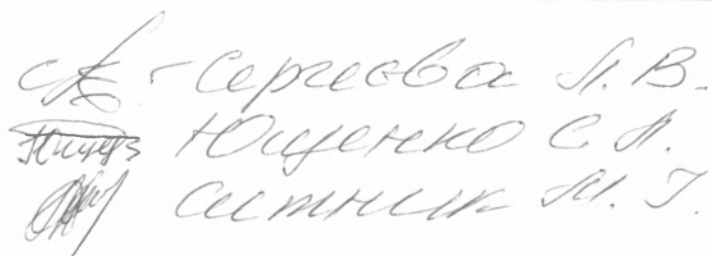 Сергеева Л. В.
Ющенко С. А.
Ситник М. Г.